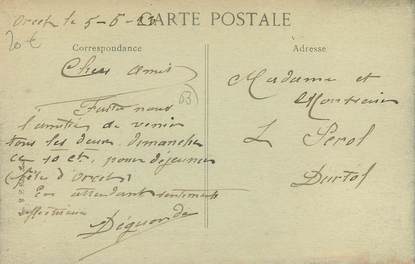 Orcet le 5-6-23
20 €
CARTE POSTALE
Correspondance
Adresse
Chers Amis
63
Faites nous
l'amitié de venir
tous les deux, dimanche
ce 10 ct, pour déjeuner
(fête d'Orcet)
En attendant sentiments
affectueux
Déquonde
Madame et
Monsieur
L Serol
Durtol